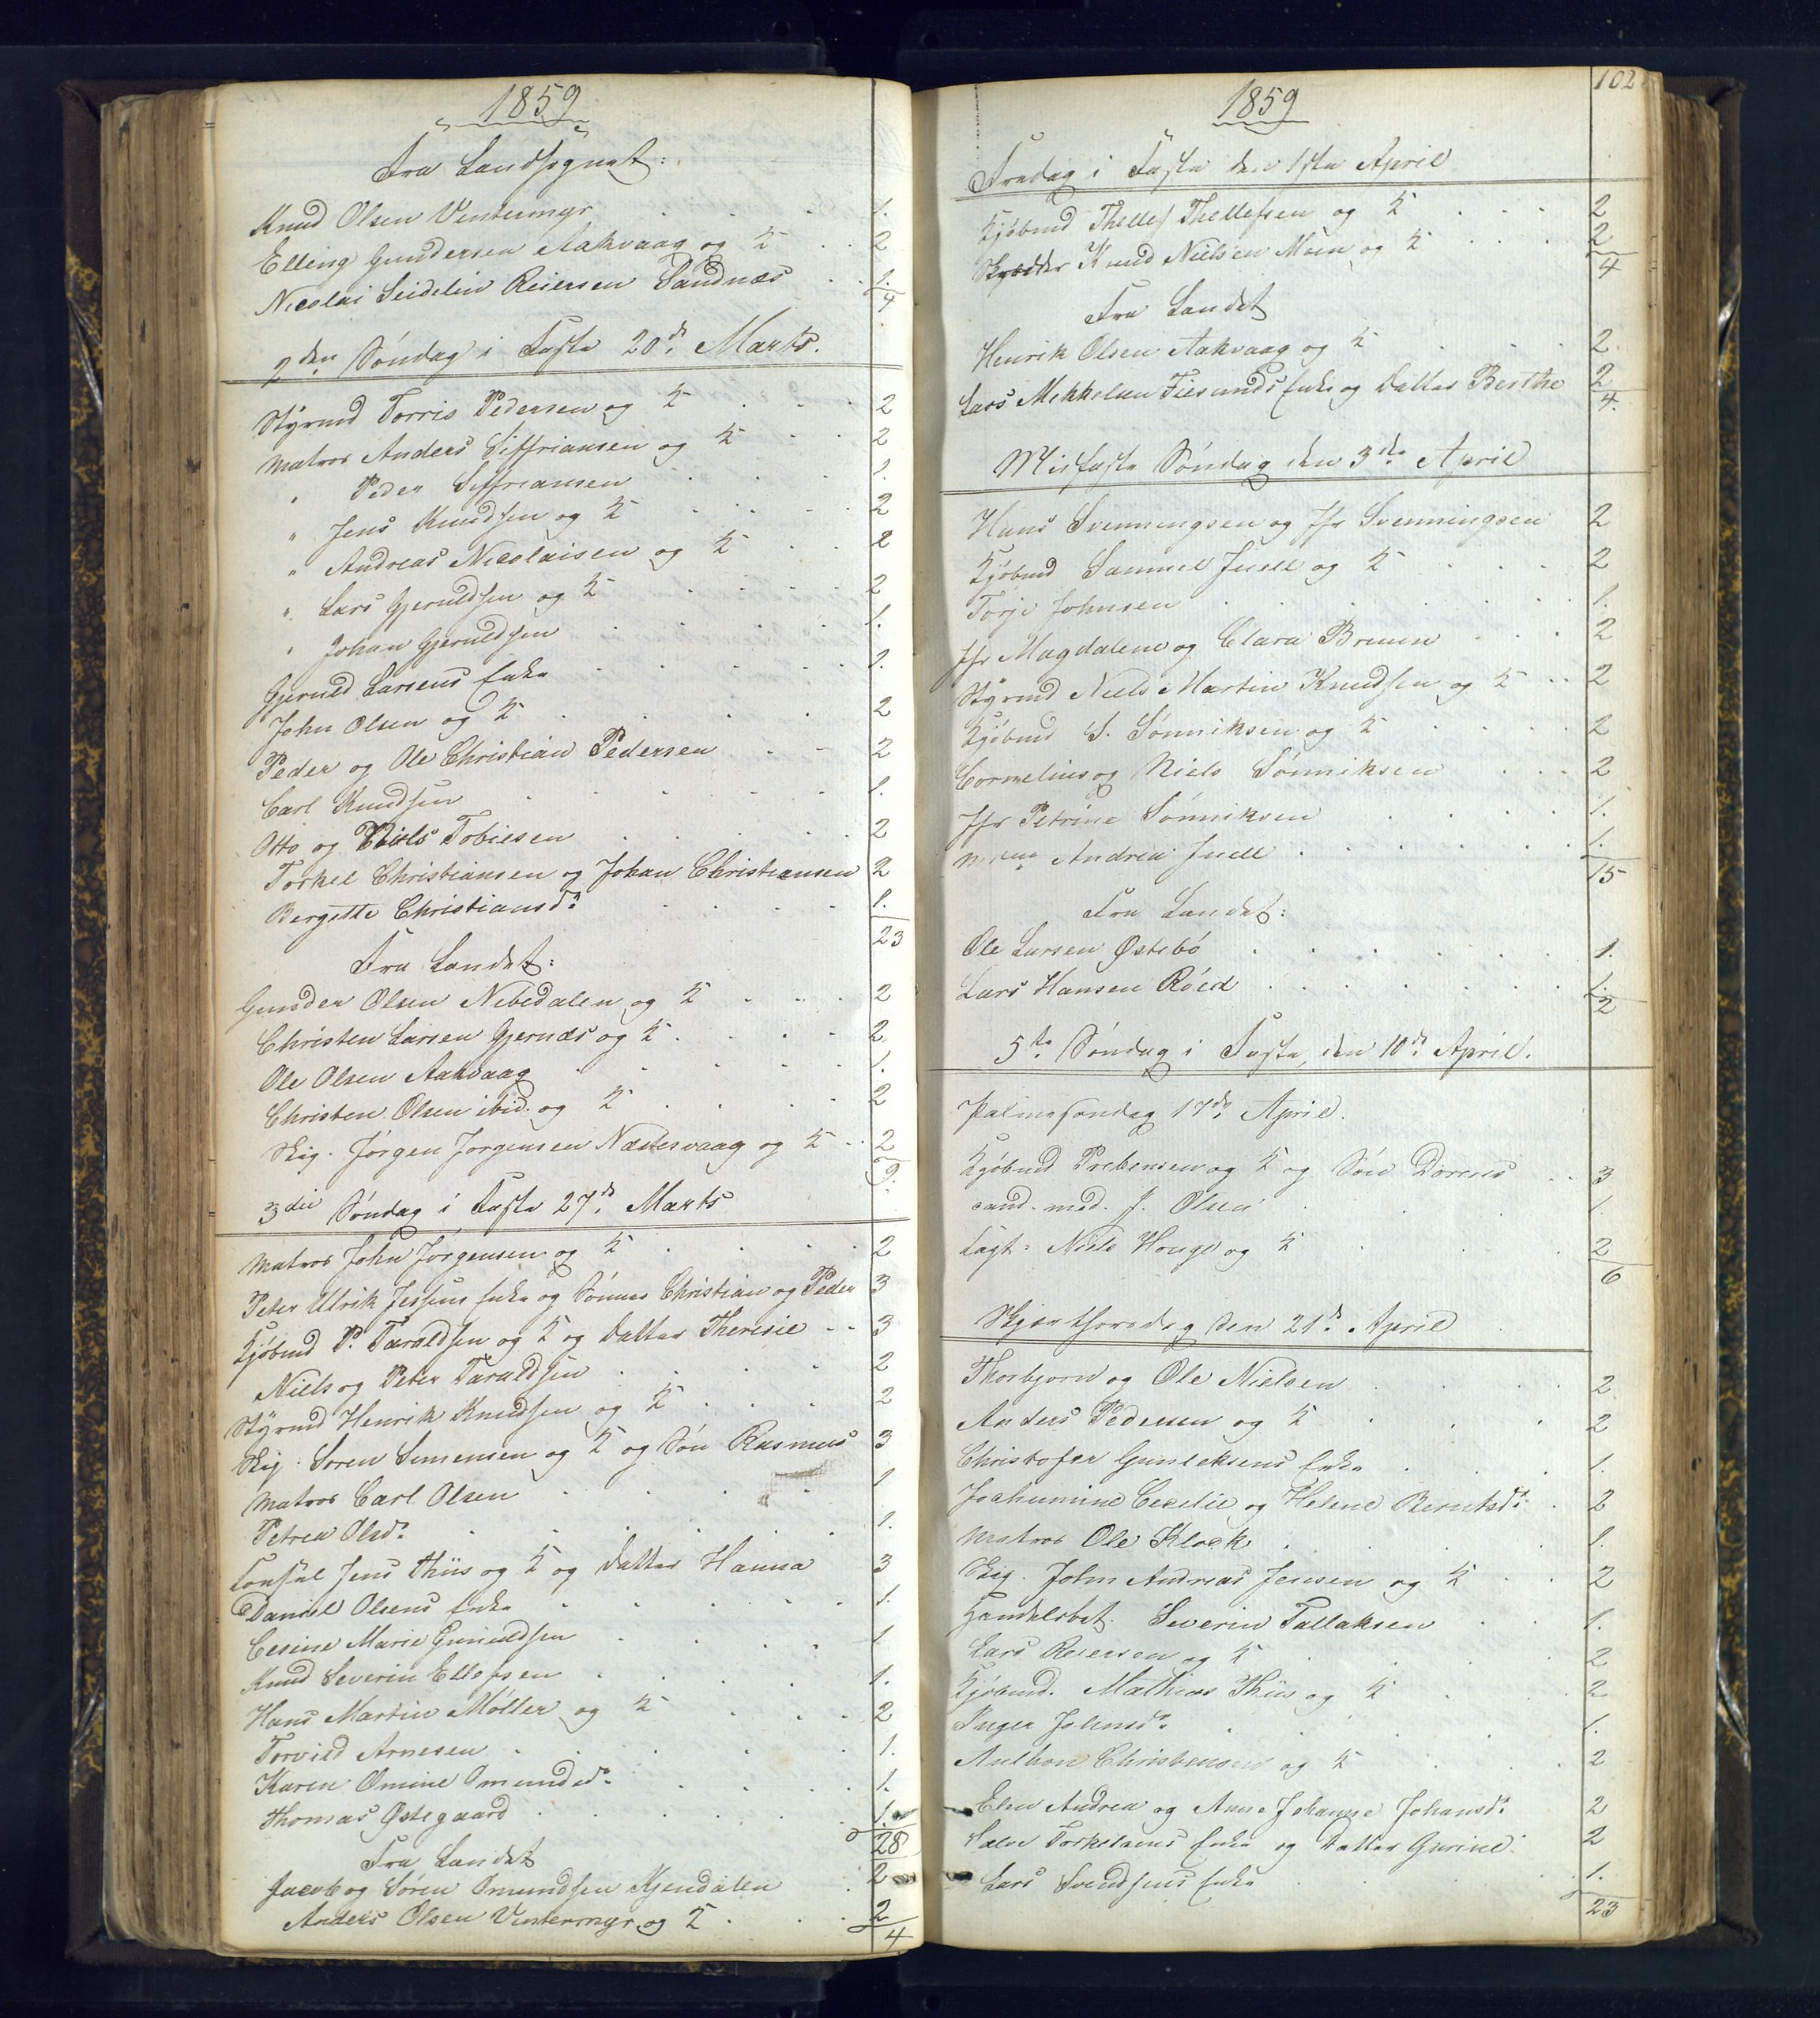 1859
Fra Landsognet:
Knud Olsen Vintermyr . . . 1.
Elling Gundersen Aakvaag og K . . 2
Nicolai Seidelin Reiersen Sandnæs . . 1.
4
2den Søndag i Faste 20de Marts.
Styrmd Torris Pedersen og K . . . 2
Matros Anders Siffriansen og K . . 2
" Peder Siffriansen . . . 1.
" Jens Knudsen og K . . . 2
" Andreas Nicolaisen og K . . 2
" Lars Gjeruldsen og K . . . 2
" Johan Gjeruldsen . . . 1.
Gjeruld Larsens Enke . . . 1.
John Olsen og K . . . 2
Peder og Ole Christian Pedersen . . 2
Carl Knudsen . . . 1.
Otto og Niels Tobiesen . . . 2
Torkel Christiansen og Johan Christiansen 2
Bergette Christiansdr . . . 1.
23
Fra Landet:
Gunder Olsen Nibedalen og K . . . 2
Christen Larsen Gjernæs og K . . . 2
Ole Olsen Aakvaag . . . 1.
Christen Olsen ibid. og K . . . 2
Skig. Jørgen Jørgensen Næstesvaag og K . . 2
9.
3die Søndag i Faste 27de Marts
Matros John Jørgensen og K . . . 2
Peter Ulrik Jessens Enke og Sønner Christian og Peder 3
Kjøbmd P. Taraldsen og K og Datter Theresie . . 3
Niels og Peter Taraldsen . . . 2
Styrmd Henrik Knudsen og K . . . 2
Skig. Søren Simensen og K og Søn Rasmus 3
Matros Carl Olsen . . . 1
Petrea Olsdr . . . 1.
Consul Jens Thiis og K og Datter Hanna 3
Daniel Olsens Enke . . . 1.
Cesine Marie Gunuldsen . . . 1
Knud Severin Ellefsen . . . 1.
Hans Martin Møller og K . . . 2
Torvild Arnesen . . . 1.
Karen Omine Omundsdr . . . 1.
Thomas Østegaard . . . 1.
28
Fra Landet
Jacob og Søren Omundsen Kjendalen . 2
Anders Olsen Vintermyr og K . . . 2
4
102
1859
Fredag i Faste den 1ste April
Kjøbmd Thellef Thellefsen og K . . . 2
Skrædder Knud Nielsen Moen og K . . . 2
4
Fra Landet
Henrik Olsen Aakvaag og K . . . 2.
Lars Mikkelsen Fiesunds Enke og Datter Berthe 2
4.
Midfaste Søndag den 3die April
Hans Svenningsen og Jfr Svenningsen 2
Kjøbmd Samuel Juell og K . . . 2
Torje Johnsen . . . 1.
Jfr Magdalene og Clara Bruun . . . 2
Styrmd Niels Martin Knudsen og K . . 2
Kjøbmd S. Sønniksen og K . . . 2
Cornelius og Niels Sønniksen . . . 2
Jfr Petrine Sønniksen . . . 1.
Andrea Juell . . . 1.
15
Fra Landet:
Ole Larsen Østebø . . . 1.
Lars Hansen Røed . . . 1.
2
5te Søndag i Faste, den 10de April.
Palmesøndag 17de April.
Kjøbmd Prebensen og K og Søn Dorens . . 3
cand. med. J. Olsen . . . 1.
Capt: Niels Houge og K . . . 2
6
Skjærthorsdag den 21de April
Thorbjørn og Ole Nielsen . . . 2.
Anders Pedersen og K . . . 2
Christofer Gunleksens Enke . . . 1.
Jochumine Cecilie og Helene Berntsdr . 2
Matros Ole Klock . . . 1.
Skig. John Andreas Jensen og K . . 2
Handelsbet. Severin Tallaksen . . 1.
Lars Reiersen og K . . . 2
Kjøbmd. Mathias Thiis og K . . . 2
Inger Johnsdr . . . 1.
Anthon Christensen og K . . . 2
Elen Andrea og Anne Johanne Johansdr 2
Salve Torkelsens Enke og Datter Gurine. 2
Lars Svendsens Enke . . . 1.
23